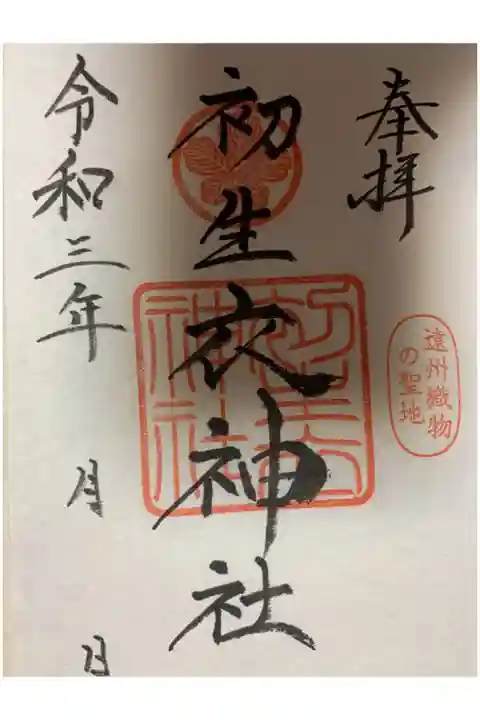 奉拝
遠州織物
の聖地
初生衣神社
初生衣
神社
令和三年 月 日